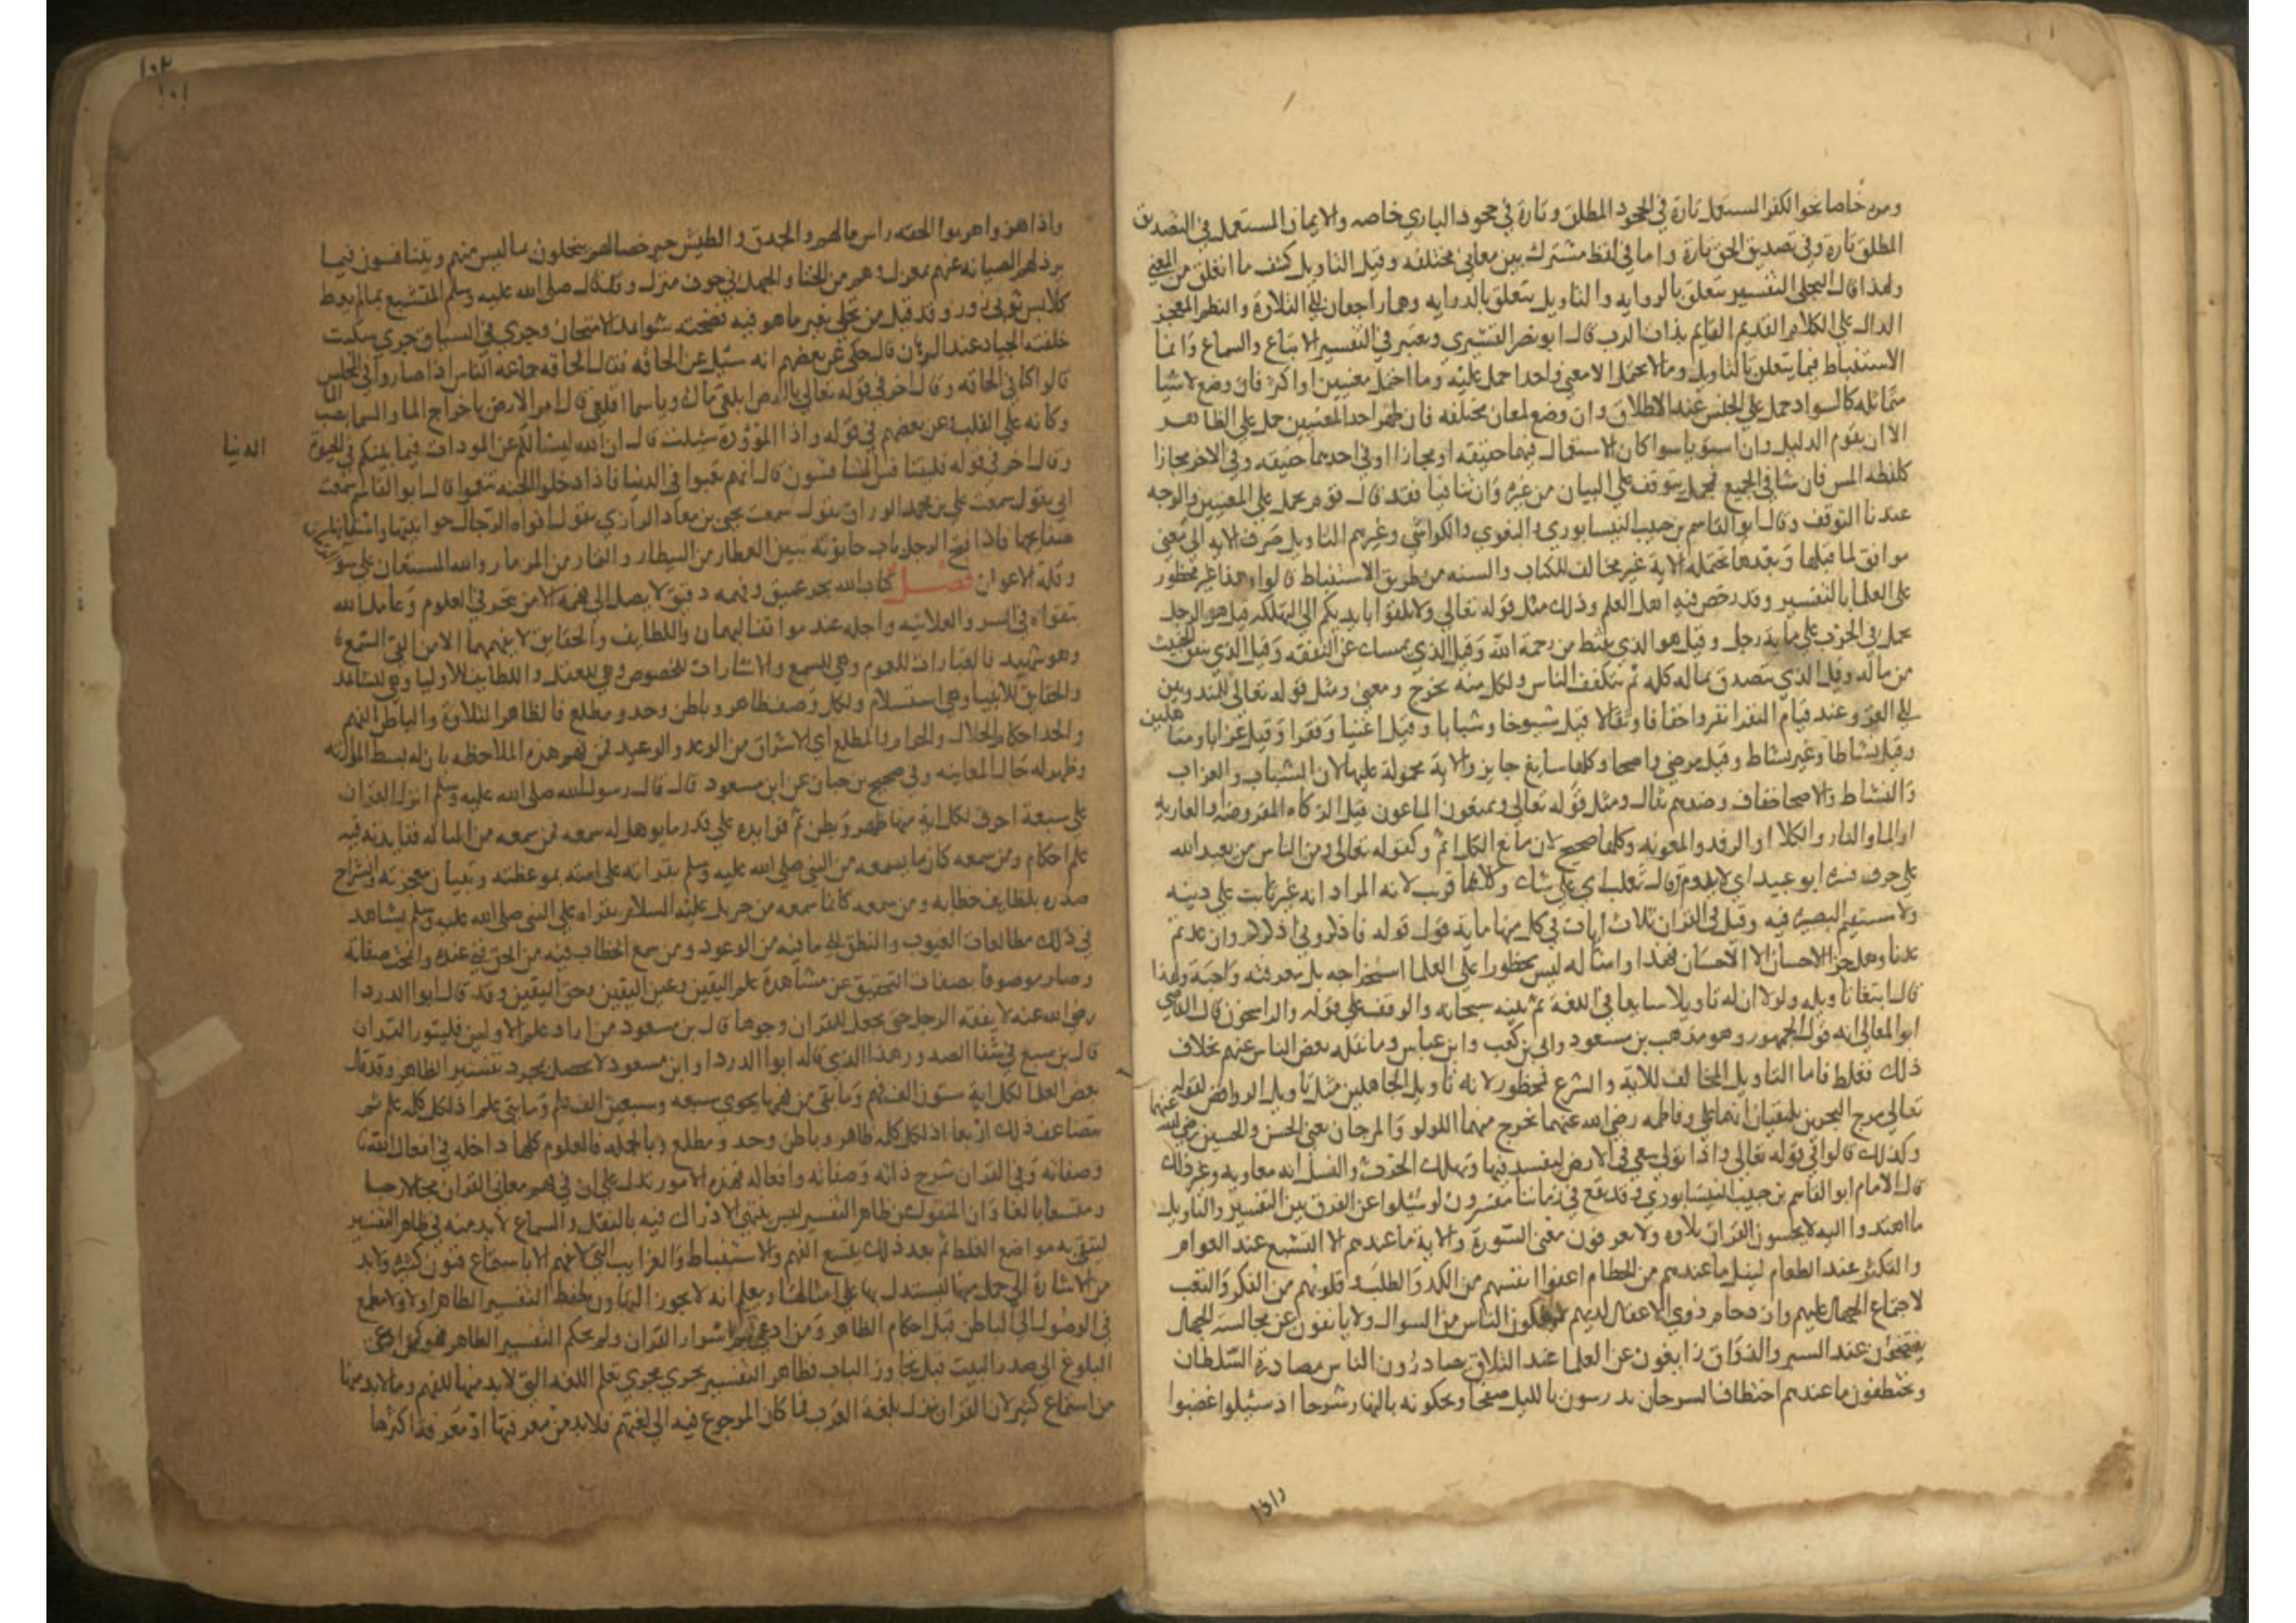 ومره خاصا نحو الكفر المستعمل تارة في الجحود المطلق وتارة في جحود الباري خاصه والايمان المستعمل في التصديق
المطلق تارة وفي تصديق الحق تارة واما في لفظ مشترك بين معاني مختلفه وقيل التاويل كشف ما انغلق من المعني
ولهذا قال البجلي التفسير يتعلق بالروايه والتاويل يتعلق بالدرايه وهما راجعان الي التلاوة والنظم المعجز
الدال علي الكلام القديم القايم بذات الرب قال ابو نصر القشيري ويعتبر في التفسير الاتباع والسماع وانما
الاستنباط فيما يتعلق بالتاويل وما لا يحتمل الا معني واحدا حمل عليه وما احتمل معنيين او اكثر فان وضع لاشيا
متماثله كالسواد حمل علي الجنس عند الاطلاق وان وضع لمعان مختلفه فان ظهر احد المعنيين حمل علي الظاهر
الا ان يقوم الدليل وان استويا سوا كان الاستعمال فيهما حقيقه او مجازا او في احدهما حقيقه وفي الاخر مجازا
كلفظه المس فان تنافي الجمع فمجمل يتوقف علي البيان من غيره وان تنافيا فقد قال قوم يحمل علي المعنيين والوجه
عندنا التوقف وقال ابو القاسم بن حبيب النيسابوري والبغوي والكواشي وغيرهم التاويل صرف الايه الي معني
موافق لما قبلها وبعدها تحتمله الاية غير مخالف للكتاب والسنه من طريق الاستنباط قالوا وهذا غير محظور
علي العلما بالتفسير وقد رخص فيه اهل العلم وذلك مثل قوله تعالي ولا تلقوا بايديكم الي التهلكه قيل هو الرجل
يحمل في الحرب علي ماية رجل وقيل هو الذي يقنط من رحمة الله وقيل الذي يمسك عن النفقه وقيل الذي ينفق الخبيث
من ماله وقيل الذي يتصدق بماله كله ثم يتكفف الناس ولكل منه مخرج ومعني ومثل قوله تعالي للمندوبين
الي الغزو عند قيام النفر انفروا خفافا وثقالا قيل شيوخا وشبابا وقيل اغنيا وفقرا وقيل عزابا ومتاهلين
وقيل نشاطا وغير نشاط وقيل مرضي واصحا وكلها سايغ جايز والاية محمولة عليها لان الشباب والعزاب
والنشاط والاصحا خفاف وضدهم ثقال ومثل قوله تعالي ويمنعون الماعون قيل الزكاه المفروضه او العارية
او الما والنار والكلا او الرفد والمعونه وكلها صحيح لان مانع الكل اثم وكقوله تعالي ومن الناس من يعبد الله
علي حرف فسره ابو عبيد اي لا يدوم وقال ثعلب اي علي شك وكلاهما قريب لانه المراد انه غير ثابت علي دينه
ولا مستقيم البصيرة فيه وقيل في القران ثلاث ايات في كل منها ماية قول قوله فاذكروني اذكركم وان عدتم
عدنا وهل جزا الاحسان الا الاحسان فهذا وامثاله ليس محظورا علي العلما استخراجه بل معرفته واجبة ولهذا
قال ابتغا تاويله ولولا ان له تاويلا سايغا في اللغة لم يبينه سبحانه والوقف علي قوله والراسخون قال القاضي
ابو المعالي انه قول الجمهور وهو مذهب بن مسعود وابي بن كعب وابن عباس وما نقله بعض الناس عنهم بخلاف
ذلك فغلط فاما التاويل المخالف للاية والشرع فمحظور لانه تاويل الجاهلين مثل تاويل الروافض لقوله
تعالي مرج البحرين يلتقيان انهما علي وفاطمه رضي الله عنهما يخرج منهما اللولو والمرجان يعني الحسن والحسين رضي الله عنهما
وكذلك قالوا في قوله تعالي واذا تولي سعي في الارض ليفسد فيها ويهلك الحرث والنسل انه معاويه وغير ذلك
قال الامام ابو القاسم بن حبيب النيسابوري وقد نبغ في زماننا مفسرون لو سئلوا عن الفرق بين التفسير والتاويل
ما اهتدوا اليه لا يحسنون القران تلاوه ولا يعرفون معني السورة والاية ما عندهم الا التشنيع عند العوام
والتكثر عند الطغام لنيل ما عندهم من الحطام اعفوا انفسهم من الكد والطلب وقلوبهم من الفكر والتعب
لاجتماع الجهال عليهم وازدحام ذوي الاغفال لديهم لا يكفون الناس من السوال ولا يانفون عن مجالسه الجهال
مفتضحون عند السبر والذواق زايغون عن العلما عند التلاق يصادرون الناس مصادرة السلطان
ويختطفون ما عندهم اختطاف السرحان يدرسون بالليل صفحا ويحكونه بالنهار شرحا اذ سئلوا غضبوا
واذا
١٠٢
١٠١
واذا هزوا هربوا القحه راس مالهم والحدق والطيش خير خصالهم يتحلون بما ليس منهم ويتنافسون فيما
يرذلهم الصيانه عنهم بمعزل وهم من الخنا والجهل في جوف منزل وقد قال صلي الله عليه وسلم المتشبع بما لم يعط
كلابس ثوبي زور وقد قيل من تحلي بغير ما هو فيه فضحته شواهد الامتحان وجري في السباق جري سكيت
خلفته الجياد عند الرهان قال حكي عن بعضهم انه سئل عن الحاقه فقال الحاقه جماعه الناس اذا صاروا في المجلس
قالوا كنا في الحاقه وقال اخر في قوله تعالي يا ارض ابلعي ماك ويا سما اقلعي قال امر الارض باخراج الما والسما بصب الما
وكانه علي القلب وعن بعضهم في قوله واذا الموؤدة سئلت قال ان الله ليسالكم عن المودات فيما بينكم في الحيوة الدنيا
وقال اخر في قوله فليتنافس المتنافسون قال انهم تعبوا في الدنيا فاذا دخلوا الجنه تنعموا قال ابو القاسم سمعت
ابي يقول سمعت علي بن محمد الوراق يقول سمعت يحيي بن معاذ الرازي يقول افواه الرجال حوانيتها واسنانها
صنايعها فاذا فتح الرجل باب حانوته تبين العطار من البيطار والتمار من الزمار والله المستعان علي سو الزمان
وقلة الاعوان فصل كتاب الله بحر عميق وفهمه دقيق لا يصل الي فهمه الا من تبحر في العلوم وعامل الله
بتقواه في السر والعلانيه واجله عند مواقف الشبهات واللطايف والحقايق لا يفهمها الا من القي السمع
وهو شهيد فالعبارات للعموم وهي للسمع والاشارات للخصوص وهي للعقل واللطايف للاوليا وهي للمشاهد
والحقايق للانبيا وهي استسلام ولكل وصف ظاهر وباطن وحد ومطلع فالظاهر التلاوة والباطن الفهم
والحد احكام الحلال والحرام والمطلع اي الاشراق من الوعد والوعيد فمن فهم هذه الملاحظه بان له بسط الموازنه
وظهر له حال المعاينه وفي صحيح بن حبان عن ابن مسعود قال قال رسول الله صلي الله عليه وسلم انزل القران
علي سبعة احرف لكل اية منها ظهر وبطن ثم فوايده علي قدر ما يوهل له سمعه فمن سمعه من التالي له ففايدته فيه
علم احكام ومن سمعه كانما يسمعه من النبي صلي الله عليه وسلم يقراه علي امته بموعظته وتبيان معجزته وانشراح
صدره بلطايف خطابه ومن سمعه كانما سمعه من جبريل عليه السلام يقراه علي النبي صلي الله عليه وسلم يشاهد
في ذلك مطالعات الغيوب والنطق الي ما فيه من الوعود ومن سمع الخطاب فيه من الحق فني عنده وامحت صفاته
وصار موصوفا بصفات التحقيق عن مشاهدة علم اليقين وعين اليقين وحق اليقين وقد قال ابو الدردا
رضي الله عنه لا يفقه الرجل حتي يجعل للقران وجوها قال بن مسعود من اراد علم الاولين فليثور القران
قال بن سبع في شفا الصدور هذا الذي قاله ابوا الدردا وابن مسعود لا يحصل بمجرد تفسير الظاهر وقد قال
بعض العلما لكل اية ستون الف فهم وما بقي من فهمها يحوي سبعه وسبعين الف علم ومايتي علم اذ لكل كلمه علم ثم
يتضاعف ذلك اربعا اذ لكل كلمه ظاهر وباطن وحد ومطلع وبالجمله فالعلوم كلها داخله في افعال الله
وصفاته وفي القران شرح ذاته وصفاته وافعاله فهذه الامور تدل علي ان في فهم معاني القران مجالا رحبا
ومتسعا بالغا وان المنقول من ظاهر التفسير ليس ينتهي الادراك فيه بالنقل والسماع لابد منه في ظاهر التفسير
ليتقي به مواضع الغلط ثم بعد ذلك يتسع الفهم والاستنباط والغرايب التي لا تفهم الا باستماع فنون كثيرة ولابد
من الاشارة الي جمل منها ليستدل بها علي امثالها ويعلم انه لا يجوز التهاون بحفظ التفسير الظاهر اولا ولا مطمع
في الوصول الي الباطن قبل احكام الظاهر ومن ادعي فهم اسرار القران ولم يحكم التفسير الظاهر فهو كمن ادعي
البلوغ الي صدر البيت قبل تجاوز الباب فظاهر التفسير يجري مجري تعلم اللغه التي لابد منها للفهم وما لابد منها
من استماع كثير لان القران نزل بلغة العرب فما كان الرجوع فيه الي لغتهم فلابد من معرفتها او معرفة اكثرها